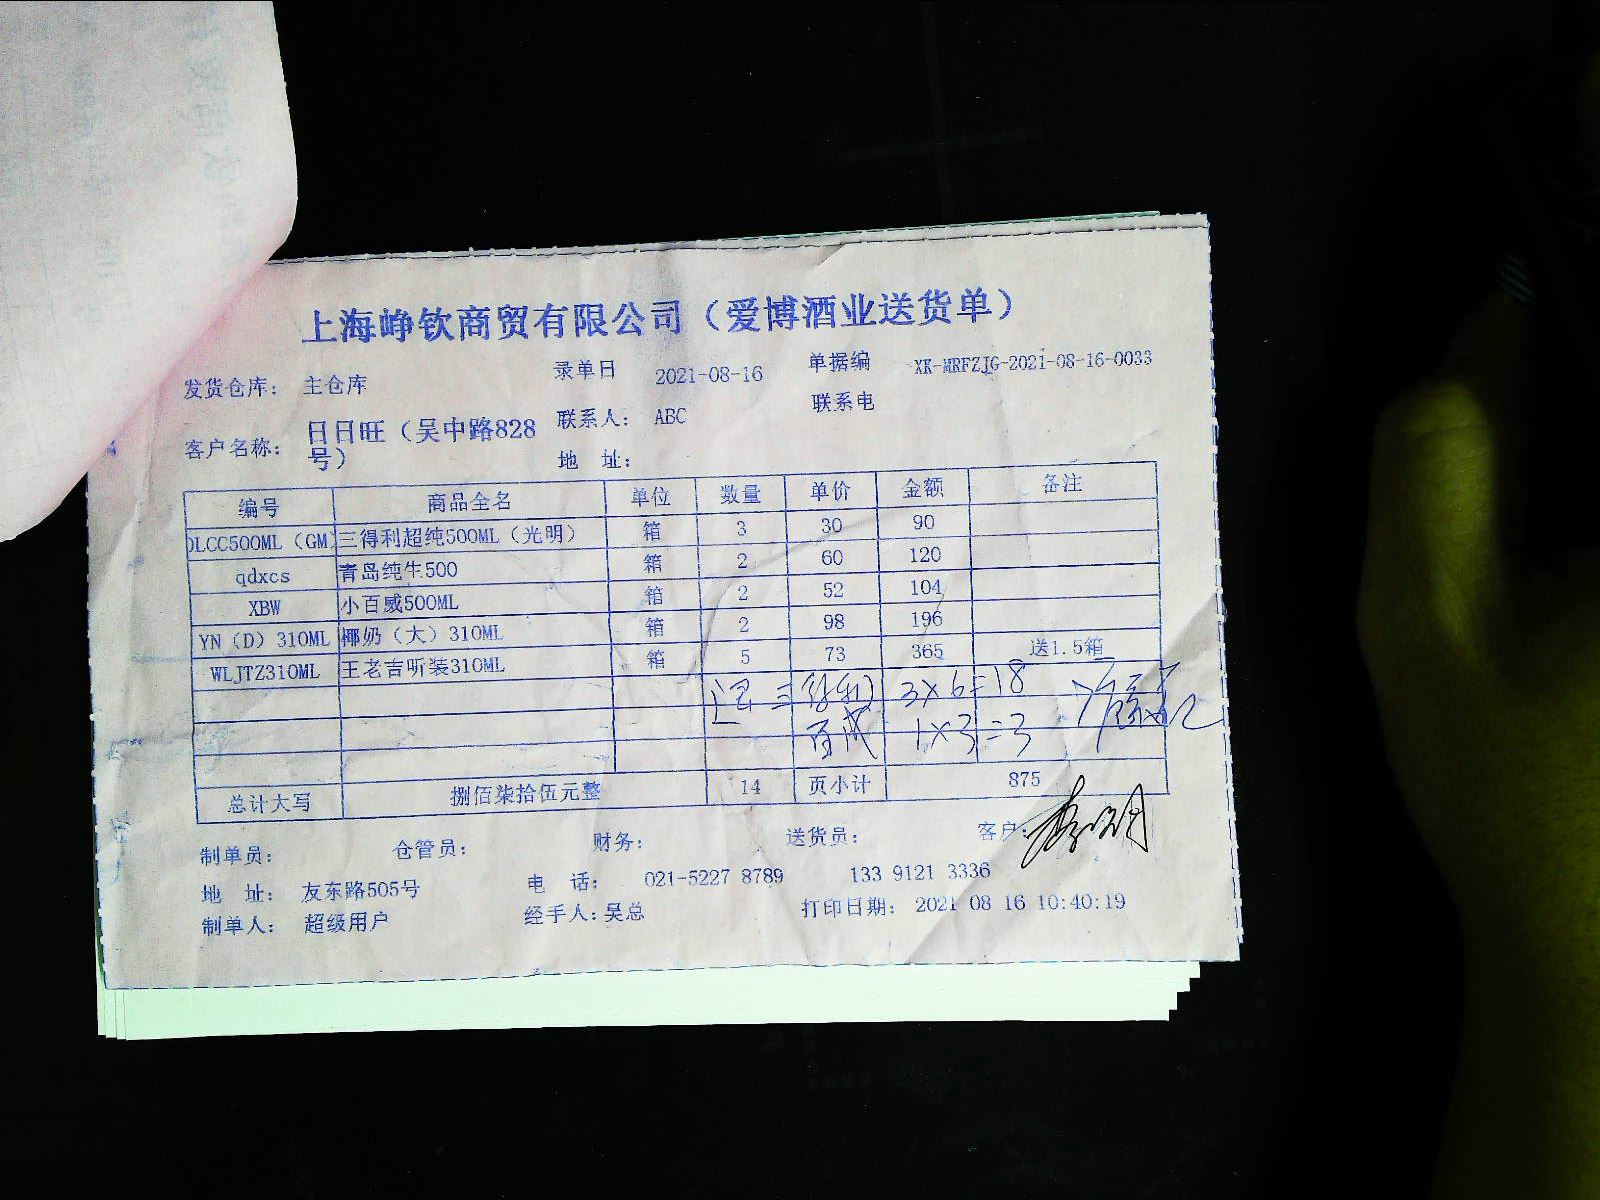 上海峥钦商贸有限公司（爱博酒业送货单）
发货仓库： 主仓库 录单日 2021-08-16 单据编 XK-MRFZJG-2021-08-16-0033
客户名称： 日日旺（吴中路828号） 联系人： ABC 联系电
地 址：
编号 商品全名 单位 数量 单价 金额 备注
DLCC500ML（GM 三得利超纯500ML（光明） 箱 3 30 90
qdxcs 青岛纯生500 箱 2 60 120
XBW 小百威500ML 箱 2 52 104
YN（D）310ML 椰奶（大）310ML 箱 2 98 196
WLJTZ310ML 王老吉听装310ML 箱 5 73 365 送1.5箱
3×6=18
百威 1×3=3
总计大写 捌佰柒拾伍元整 14 页小计 875
制单员： 仓管员： 财务： 送货员： 客户：
地 址： 友东路505号 电 话： 021-5227 8789 133 9121 3336
制单人： 超级用户 经手人：吴总 打印日期： 2021 08 16 10:40:19